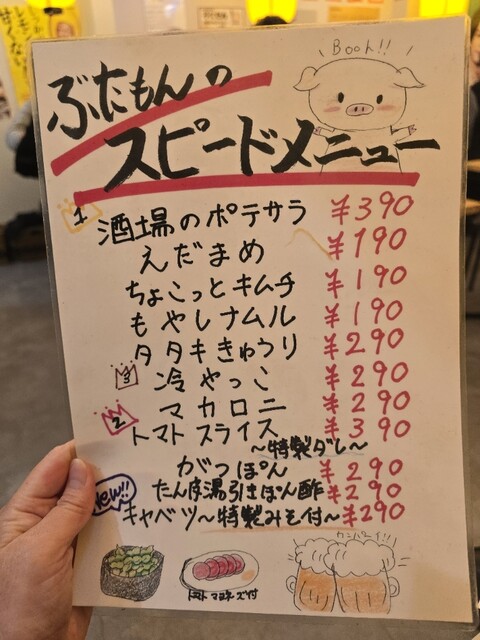 Booh!!
ぶたもんの
スピードメニュー
1 酒場のポテサラ ¥390
えだまめ ¥190
ちょこっとキムチ ¥190
もやしナムル ¥190
タタキきゅうり ¥290
3 冷やっこ ¥290
マカロニ ¥290
2 トマトスライス ¥390
~特製ダレ~
がつぽん ¥290
湯引きぽん酢 ¥290
New!! キャベツ~特製みそ付~ ¥290
トマト マヨネーズ付
カンパーイ!!